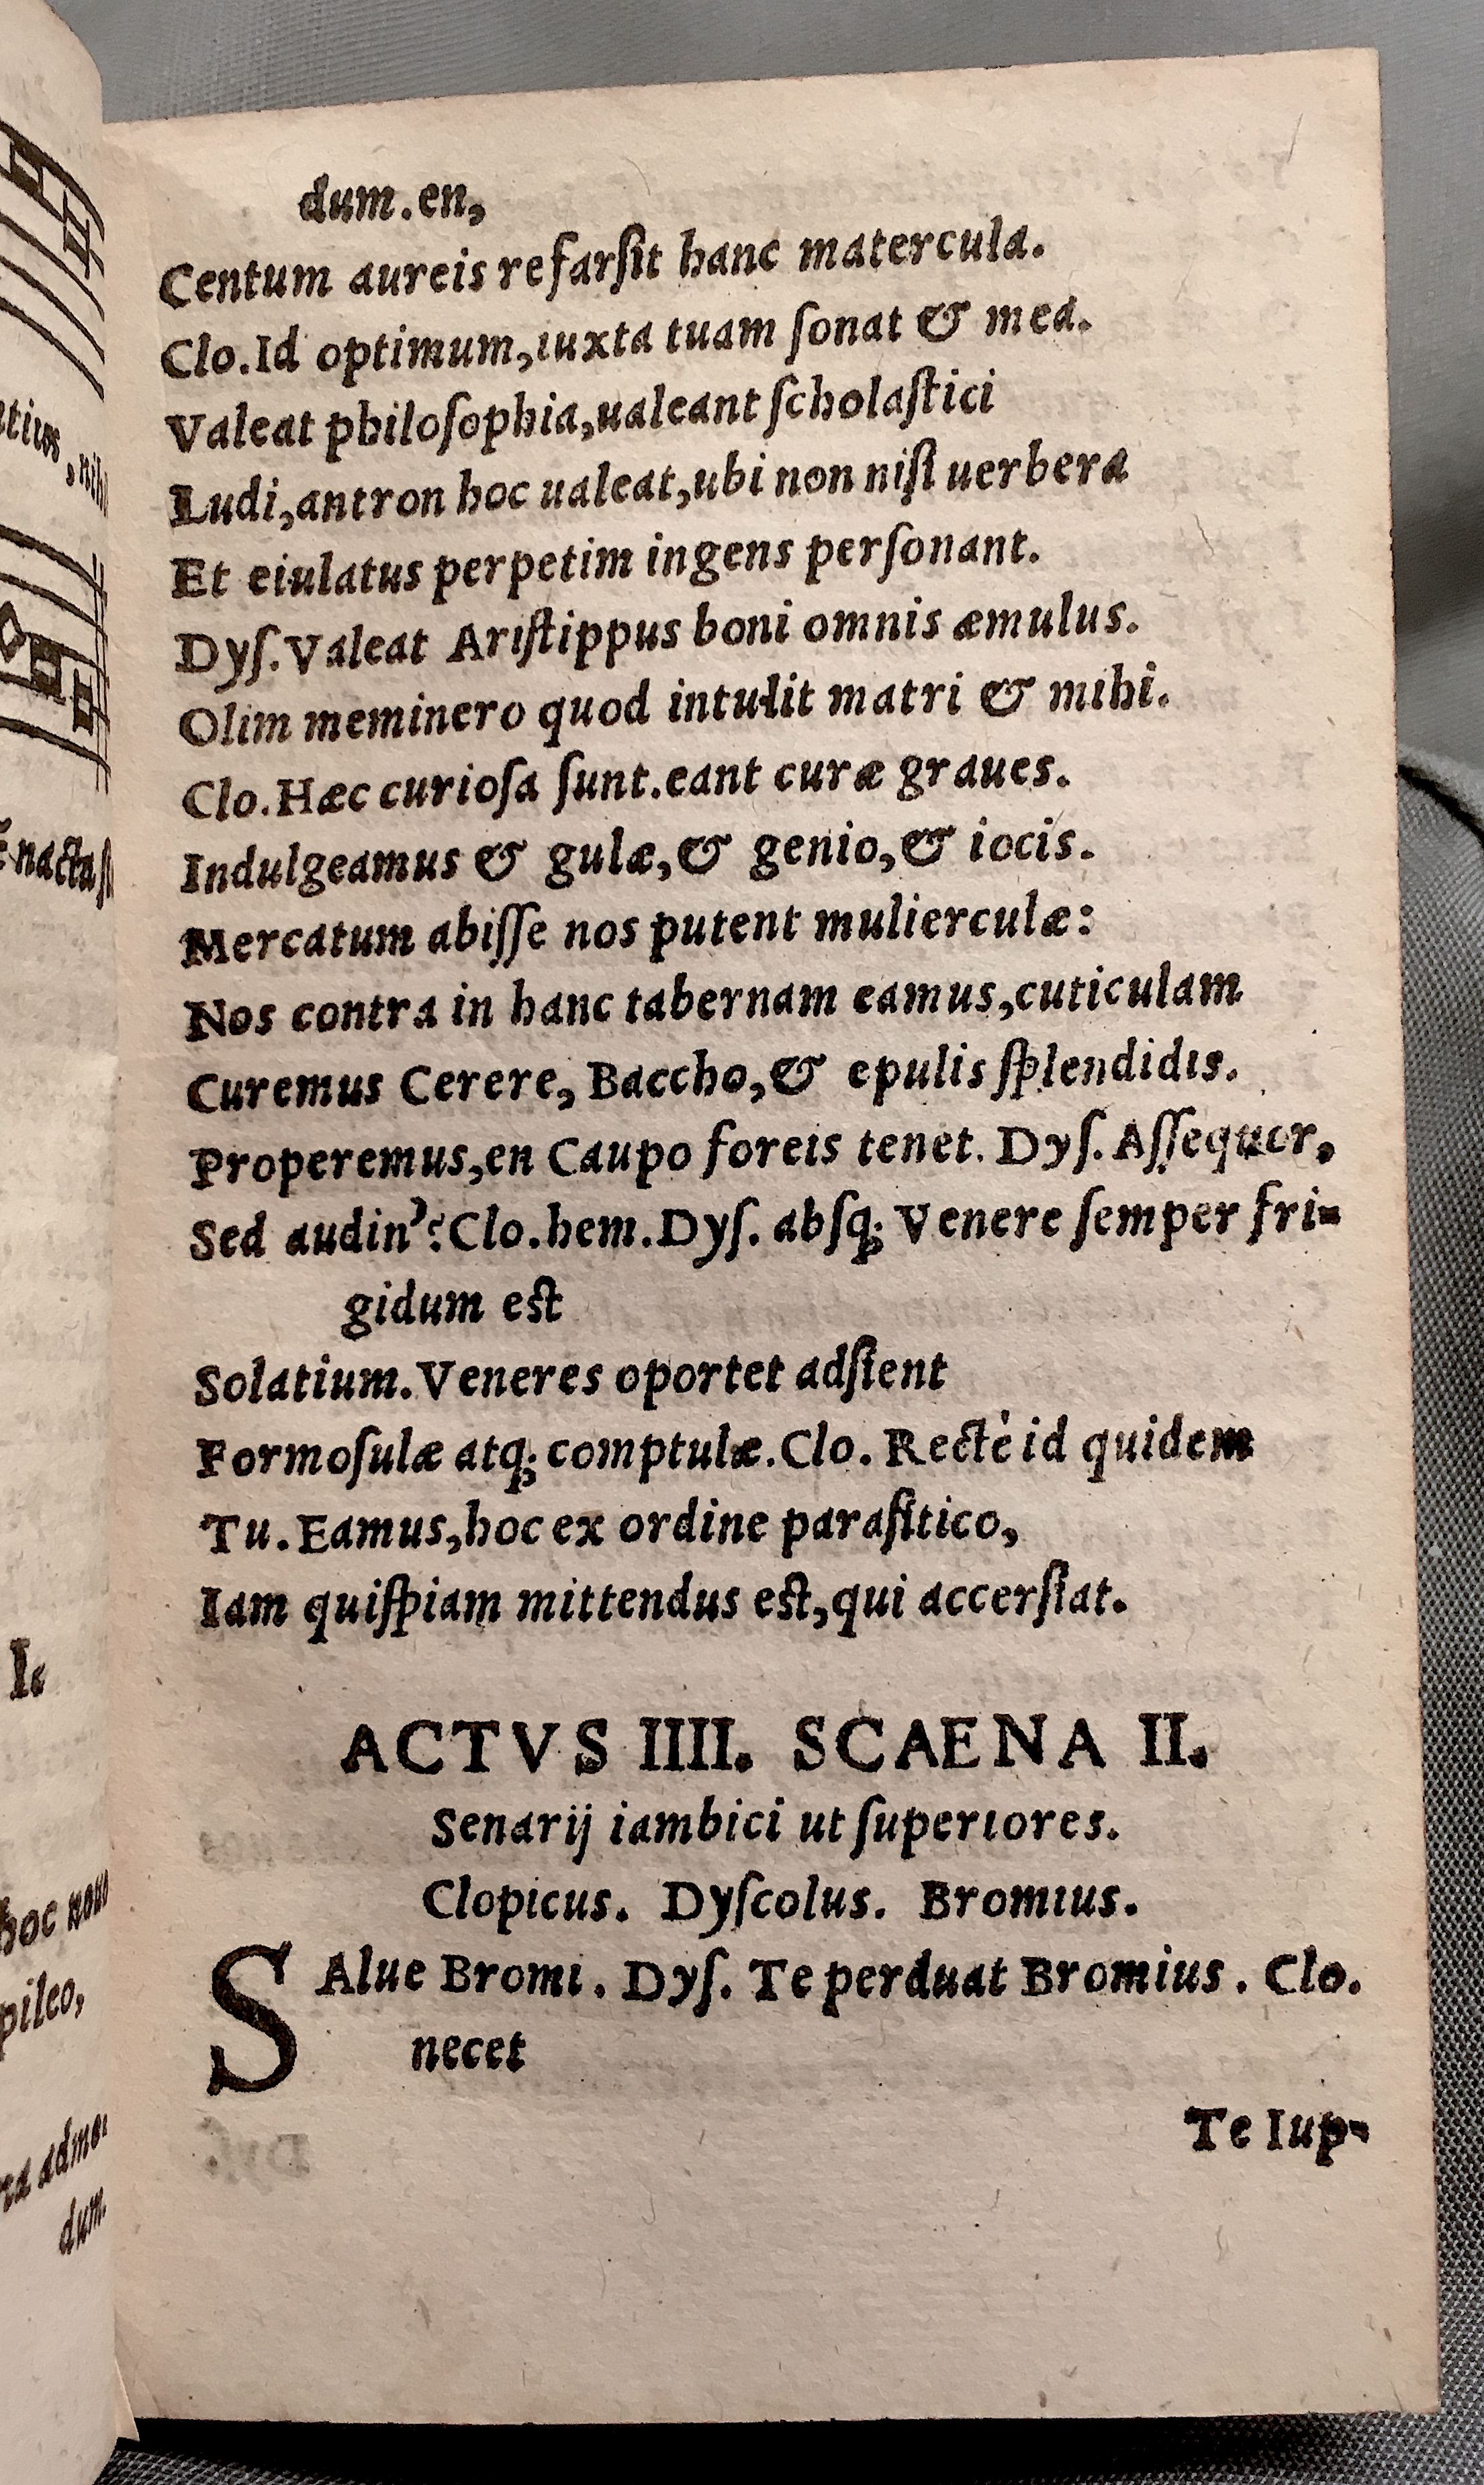 dum.en,
Centum aureis refarſit hanc matercula.
Clo.Id optimum,iuxta tuam ſonat & mea.
Valeat philoſophia,ualeant ſcholaſtici
Ludi,antron hoc ualeat,ubi non niſi uerbera
Et eiulatus perpetim ingens perſonant.
Dyſ.Valeat Ariſtippus boni omnis æmulus.
Olim meminero quod intulit matri & mihi.
Clo.Hæc curioſa ſunt.eant curæ graues.
Indulgeamus & gulæ,& genio,& iocis.
Mercatum abiſſe nos putent mulierculæ:
Nos contra in hanc tabernam eamus,cuticulam
Curemus Cerere, Baccho,& epulis ſplendidis.
Properemus,en Caupo foreis tenet. Dyſ. Aſſequor,
Sed audin'?Clo.hem.Dyſ. abſq; Venere ſemper fri-
gidum eſt
Solatium.Veneres oportet adſient
Formoſulæ atq; comptulæ.Clo. Rectè id quidem
Tu.Eamus,hoc ex ordine paraſitico,
Iam quiſpiam mittendus eſt,qui accerſiat.
ACTVS IIII. SCAENA II.
Senarij iambici ut ſuperiores.
Clopicus. Dyſcolus. Bromius.
SAlue Bromi. Dyſ. Te perduat Bromius. Clo.
necet
Te Iup-
nacta
I.
hoc
pileo,
dum.